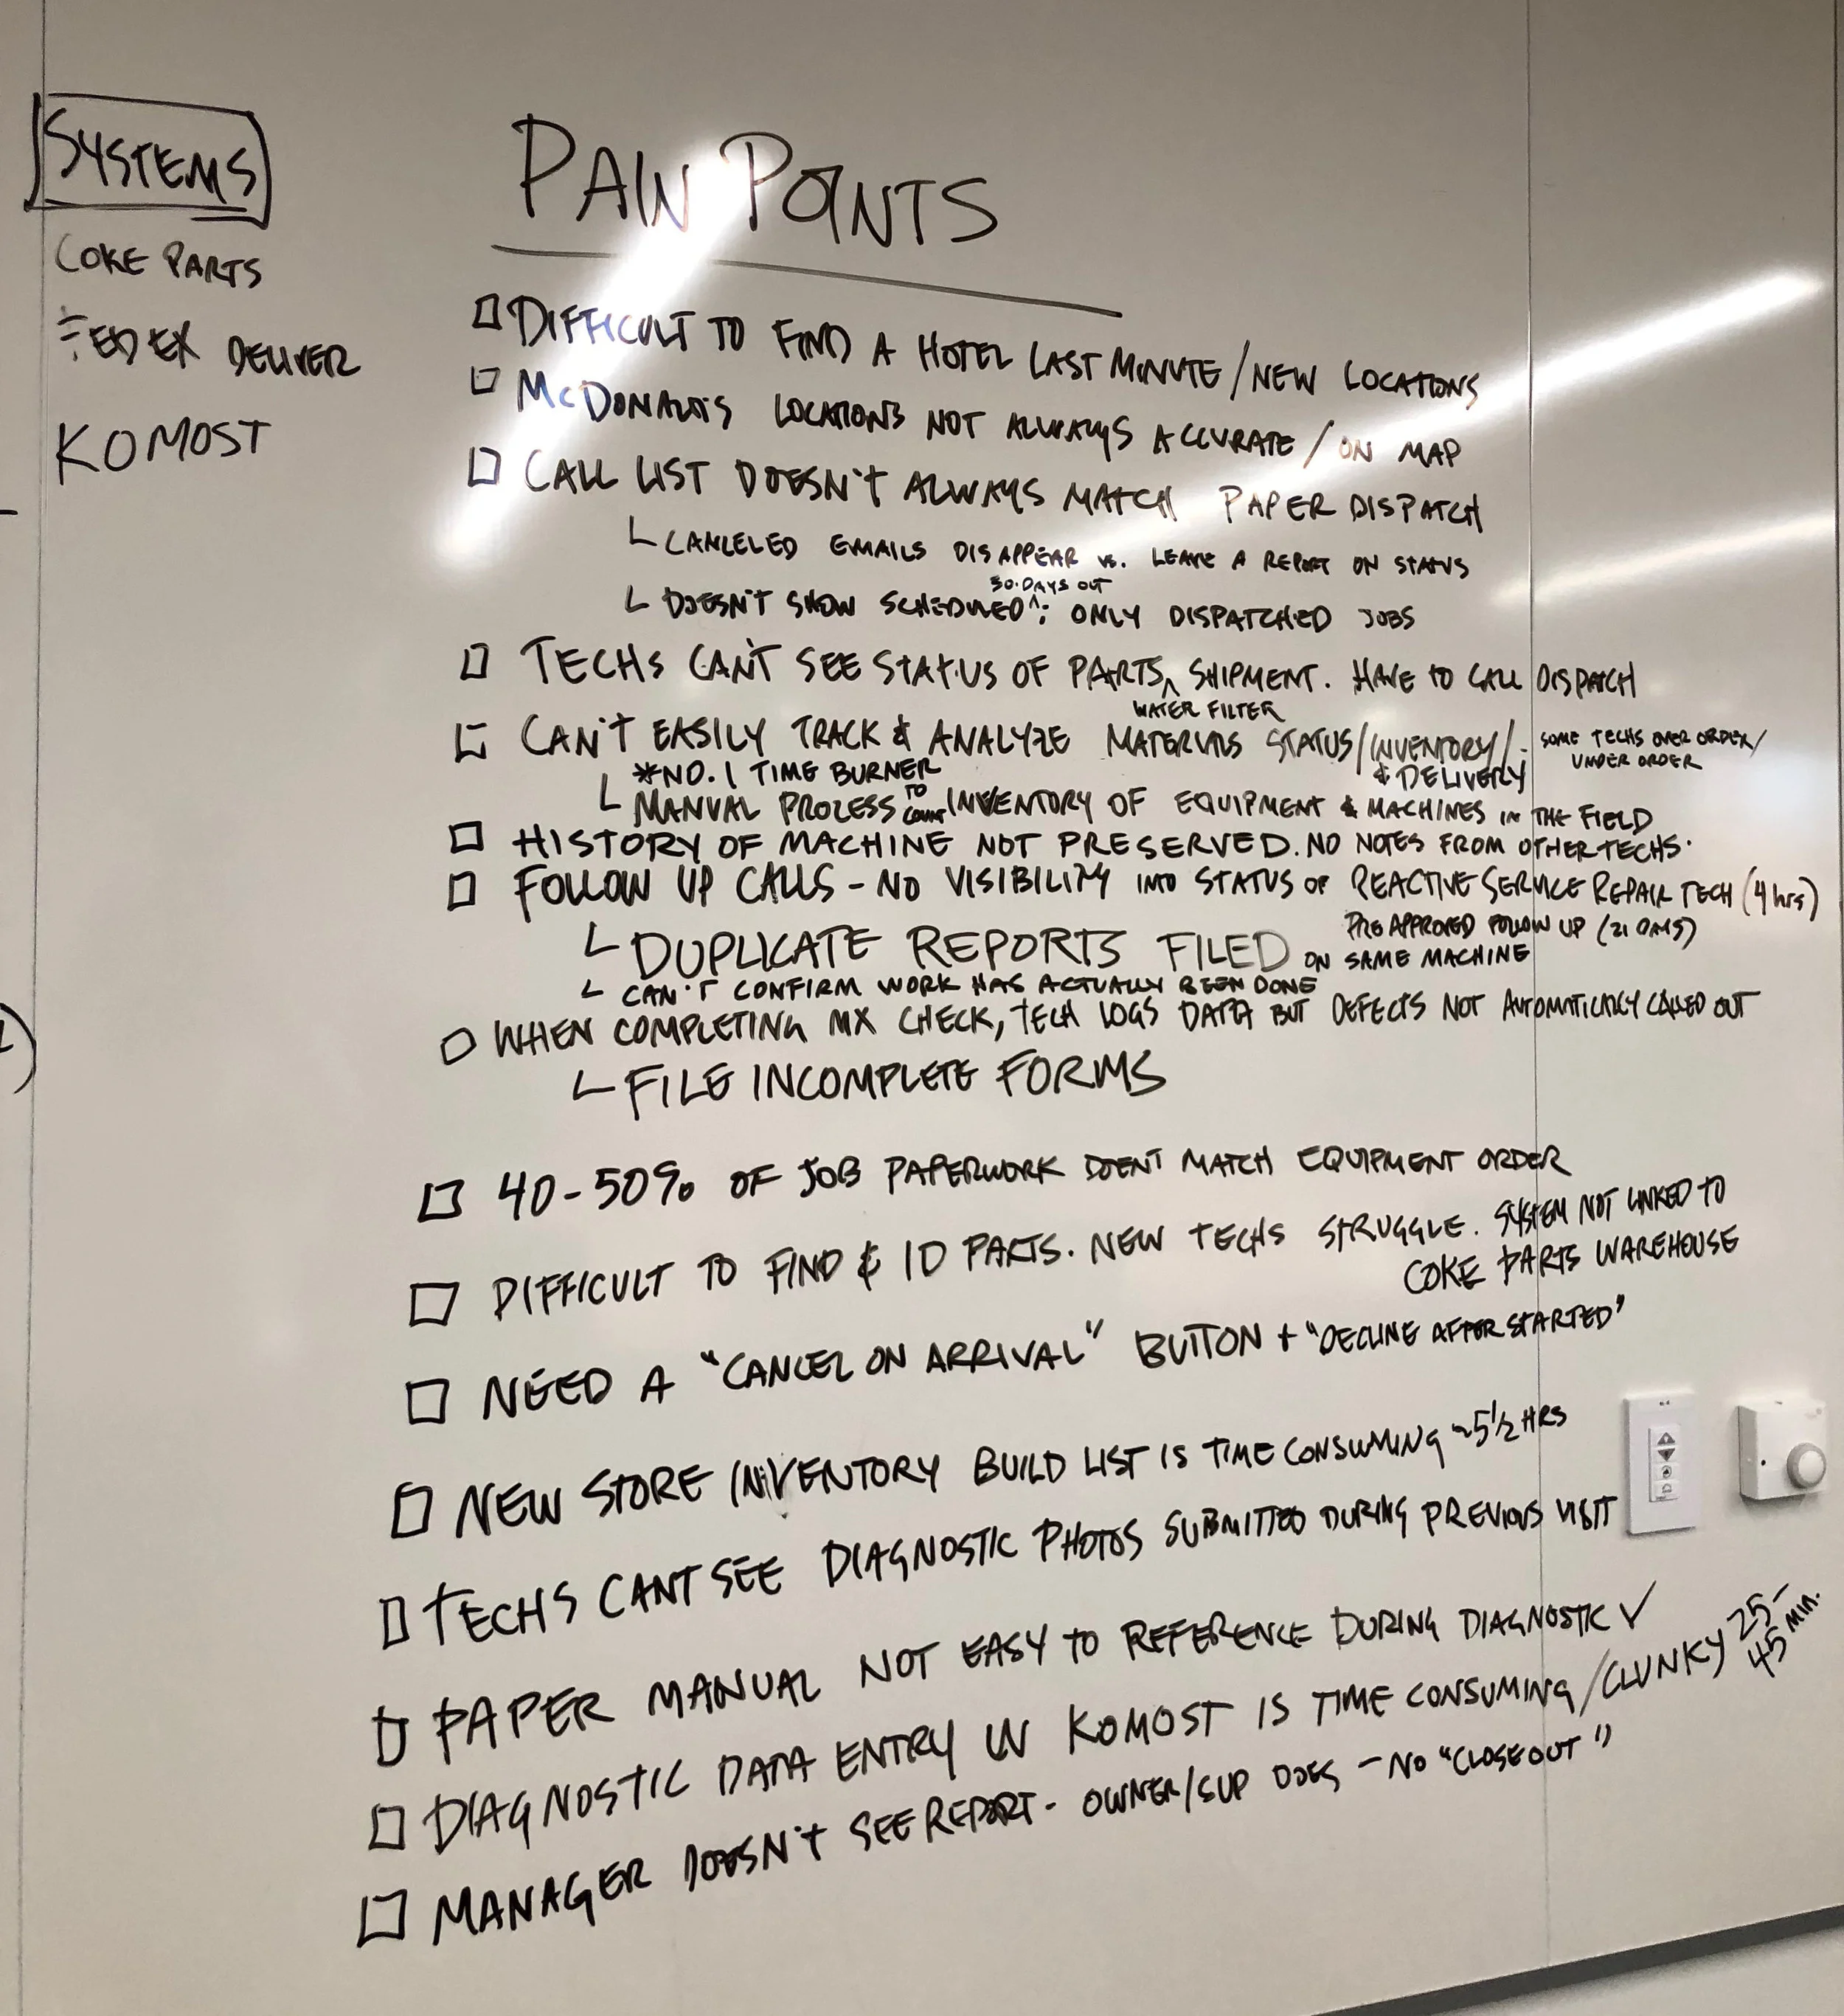 SYSTEMS
COKE PARTS
FEDEX DELIVER
KOMOST
PAIN POINTS
DIFFICULT TO FIND A HOTEL LAST MINUTE/NEW LOCATIONS
McDONALD'S LOCATIONS NOT ALWAYS ACCURATE/ON MAP
CALL LIST DOESN'T ALWAYS MATCH PAPER DISPATCH
CANCELED EMAILS DISAPPEAR vs. LEAVE A REPORT ON STATUS
30·DAYS OUT
DOESN'T SHOW SCHEDULED^; ONLY DISPATCHED JOBS
TECHS CAN'T SEE STATUS OF PARTS^ SHIPMENT. HAVE TO CALL DISPATCH
WATER FILTER
CAN'T EASILY TRACK & ANALYZE MATERIALS STATUS/INVENTORY/- SOME TECHS OVER ORDER/
UNDER ORDER
*NO. 1 TIME BURNER & DELIVERY
MANUAL PROCESS TO COUNT INVENTORY OF EQUIPMENT & MACHINES IN THE FIELD
HISTORY OF MACHINE NOT PRESERVED. NO NOTES FROM OTHER TECHS.
FOLLOW UP CALLS - NO VISIBILITY INTO STATUS OF REACTIVE SERVICE REPAIR TECH (4 hrs)
PRE APPROVED FOLLOW UP (21 DAYS)
DUPLICATE REPORTS FILED ON SAME MACHINE
CAN'T CONFIRM WORK HAS ACTUALLY BEEN DONE
WHEN COMPLETING MX CHECK, TECH LOGS DATA BUT DEFECTS NOT AUTOMATICALLY CALLED OUT
FILE INCOMPLETE FORMS
40-50% OF JOB PAPERWORK DOENT MATCH EQUIPMENT ORDER
DIFFICULT TO FIND & ID PARTS. NEW TECHS STRUGGLE. SYSTEM NOT LINKED TO
COKE PARTS WAREHOUSE
NEED A "CANCEL ON ARRIVAL" BUTTON + "DECLINE AFTER STARTED"
NEW STORE INVENTORY BUILD LIST IS TIME CONSUMING ~5 1/2 HRS
TECHS CANT SEE DIAGNOSTIC PHOTOS SUBMITTED DURING PREVIOUS VISIT
PAPER MANUAL NOT EASY TO REFERENCE DURING DIAGNOSTIC ✓
DIAGNOSTIC DATA ENTRY IN KOMOST IS TIME CONSUMING/CLUNKY 25-
45 MIN.
MANAGER DOESN'T SEE REPORT - OWNER/SUP DOES - NO "CLOSEOUT"